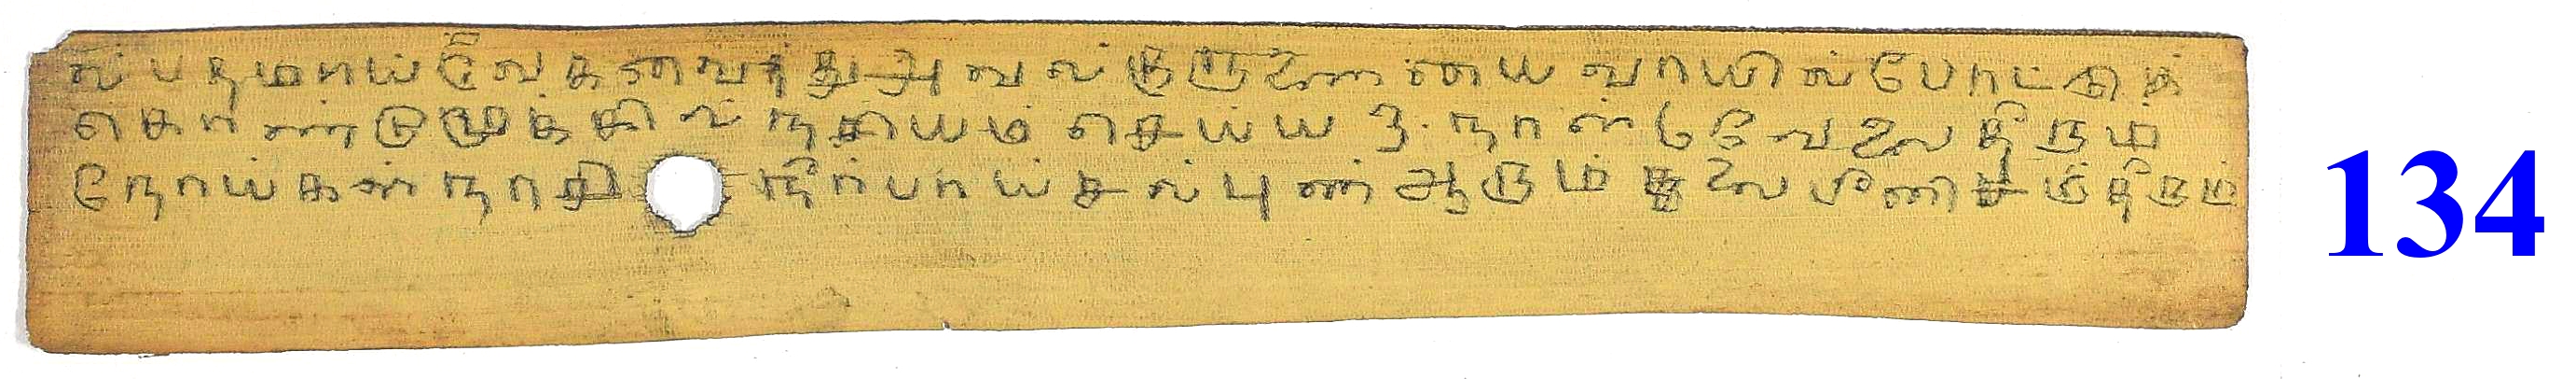 ல் பதமாய் வேகவைத்து அவல் குருணையை வாயில் போட்டுக்
கொண்டு மூக்கில் நசியம் செய்ய ௩. நாள் ௬ வேலை தீரும்
நோய்கள் நாசி நீர்பாய்சல் புண் ஆரும் தலை பீணிசம் தீரும்
134